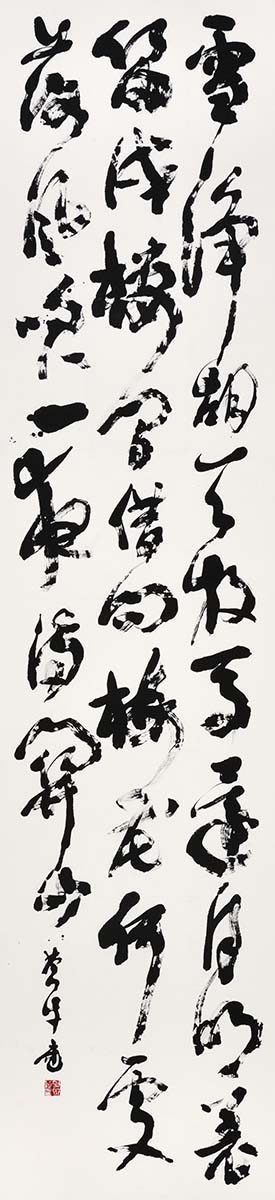 雪淨胡天牧馬還月明羌
笛戍樓間借問梅花何處
落風吹一夜滿關山